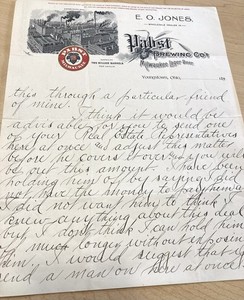 E. O. JONES,
Pabst
BREWING CO.
Milwaukee Lager Beer
PABST
MILWAUKEE
189
this through a particular friend
of mine. I think it would be
advisable for you to send one
of your Real Estate representatives
here at once and adjust this matter
before he covers it over and you will
be out this amount. I have been
holding them off by saying I did
not have the money to pay them as
I did not want him to think I
knew anything about this deal
but I don't think I can hold him
off much longer without exposing
them, I would suggest that you
send a man on here at once